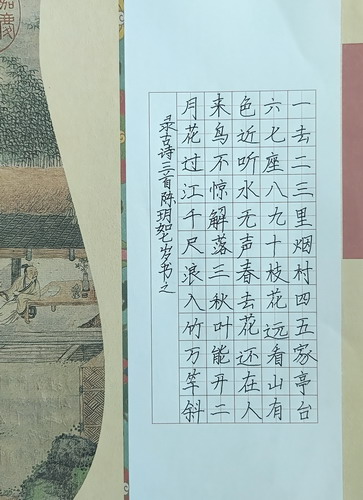 一去二三里烟村四五家亭台
六七座八九十枝花远看山有
色近听水无声春去花还在人
来鸟不惊解落三秋叶能开二
月花过江千尺浪入竹万竿斜
录古诗三首陈玥如七岁书之